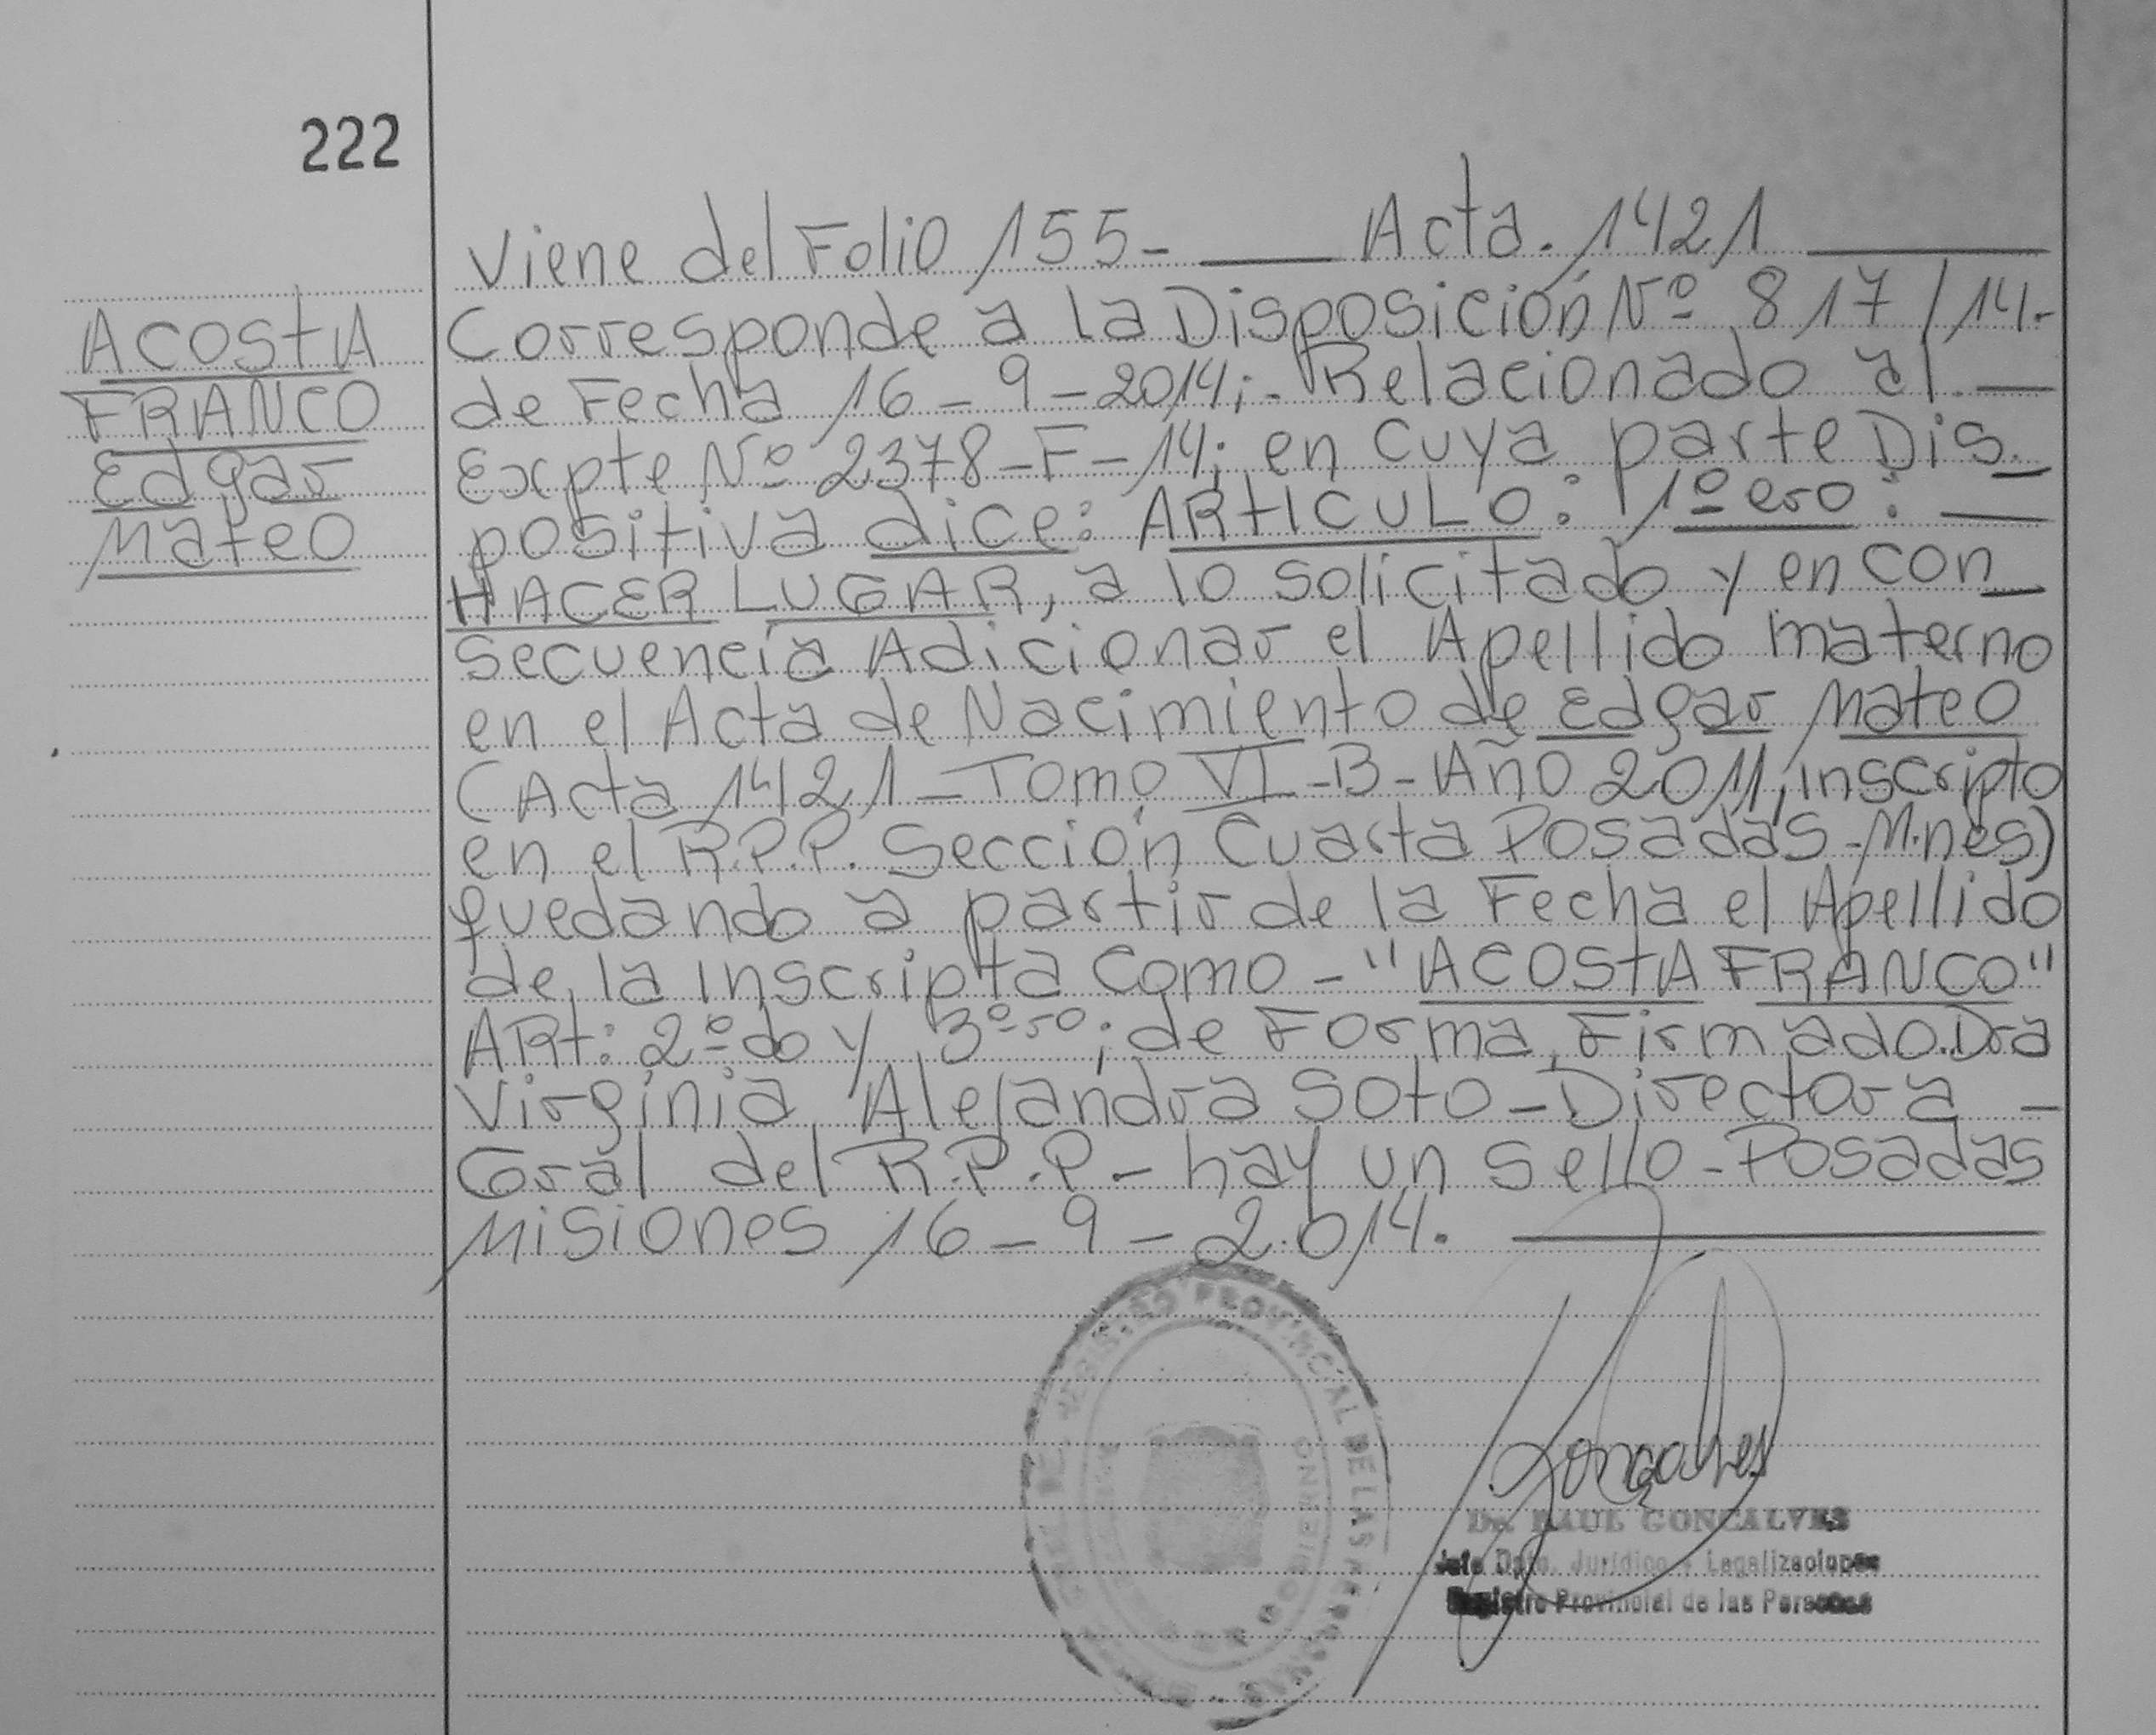 222
Viene del Folio 155- Acta. 1421
ACOSTA
FRANCO
Edgar
Mateo
Corresponde a la Disposición Nº 817/14.-
de Fecha 16-9-2014;- Relacionado al
Expte Nº 2378-F-14; en cuya parte Dis_
positiva dice: ARtICULO: 1º ero:
HACER LUGAR, a lo solicitado y en con_
secuencia Adicionar el Apellido materno
en el Acta de Nacimiento de Edgar Mateo
(Acta 1421-Tomo VI-B-Año 2011, inscripto
en el R.P.P. Sección Cuarta Posadas-M.nes)
quedando a partir de la Fecha el Apellido
de la inscripta como-"ACOSTA FRANCO"
ARt: 2º do y 3º ro; de Forma, Firmado.Dra
Virginia Alejandra Soto-Directora -
Gral del R.P.P.-hay un sello-Posadas
Misiones 16-9-2.014.
REGISTRO PROVINCIAL DE LAS PERSONAS
Gonçalves
Dr. RAUL GONCALVES
Jefe Dpto. Jurídico y Legalizaciones
Registro Provincial de las Personas